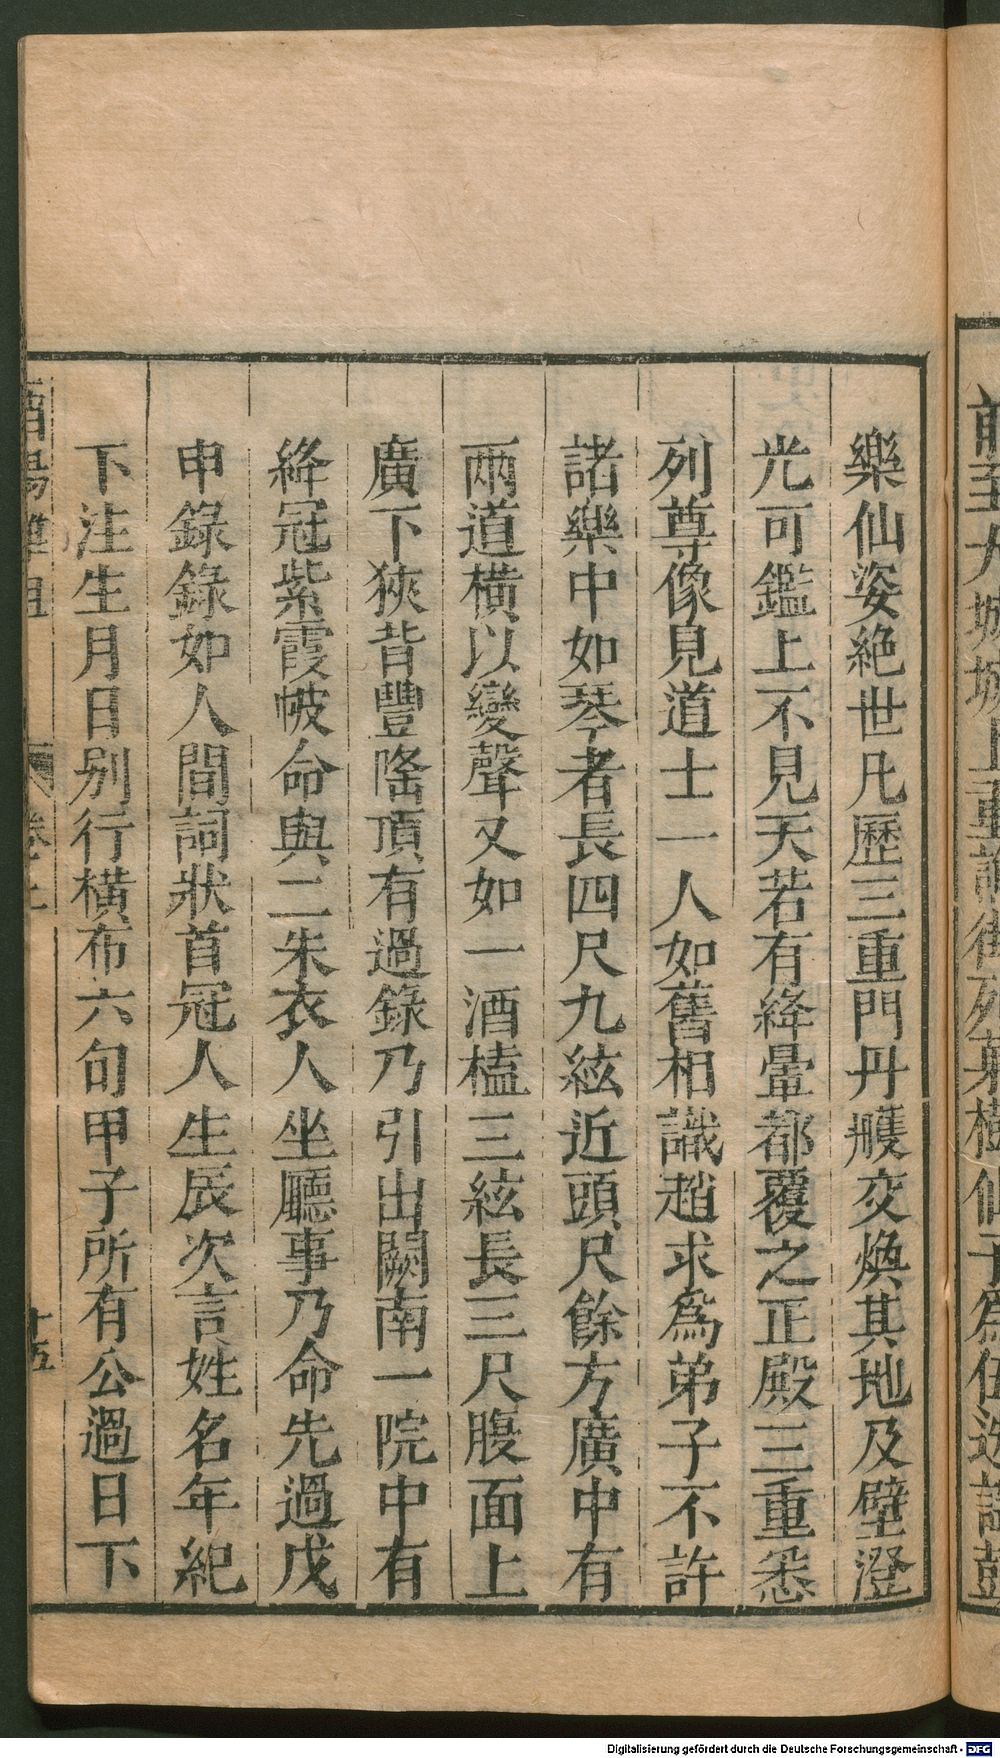 前至大城城上重譙街列菓樹仙子為伍迭謠鼓
樂仙姿絶世凡歷三重門丹雘交煥其地及壁澄
光可鑑上不見天若有絳暈都覆之正殿三重悉
列尊像見道士一人如舊相識趙求爲弟子不許
諸樂中如琴者長四尺九絃近頭尺餘方廣中有
兩道橫以變聲又如一酒榼三絃長三尺腹面上
廣下狹背豐隆頂有過錄乃引出闕南一院中有
絳冠紫霞帔命與二朱衣人坐廳事乃命先過戊
申錄錄如人間詞狀首冠人生辰次言姓名年紀
下注生月日别行橫布六旬甲子所有公過日下
酉陽雜俎 卷之二 十五
Digitalisierung gefördert durch die Deutsche Forschungsgemeinschaft - DFG